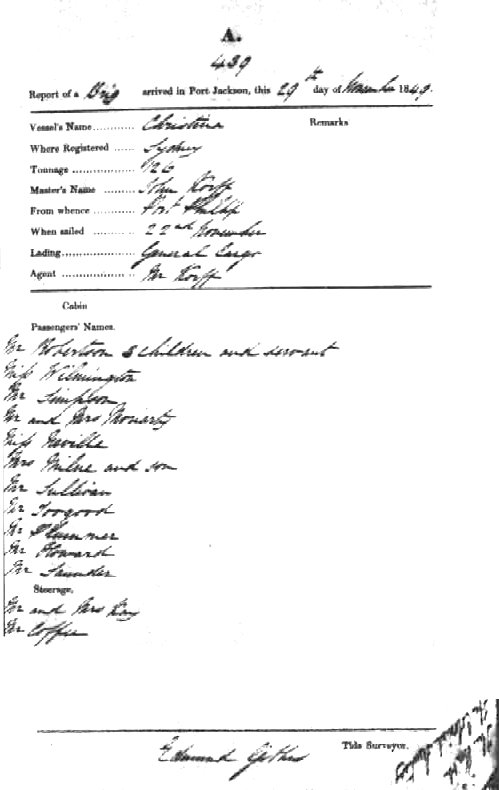 A.
439
Report of a Brig arrived in Port Jackson, this 29th day of November 1849.
Vessel's Name........... Christina
Remarks
Where Registered ...... Sydney
Tonnage .................. 126
Master's Name ........ John Korff
From whence ............ Port Phillip
When sailed ............ 22nd November
Lading.................... General Cargo
Agent .................... Mr Korff
Cabin
Passengers' Names.
Mr Robertson 3 children and servant
Miss Wilmington
Mr Simpson
Mr and Mrs Moriarty
Miss Neville
Mrs Milne and son
Mr Sullivan
Mr Toogood
Mr Plummer
Mr Howard
Mr Saunder
Steerage.
Mr and Mrs Kay
Mr Coffee
Edmund
Tide Surveyor.